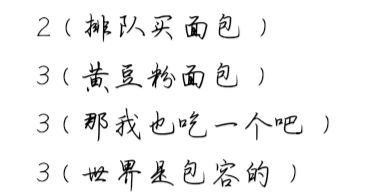 2（排队买面包）
3（黄豆粉面包）
3（那我也吃一个吧）
3（世界是包容的）